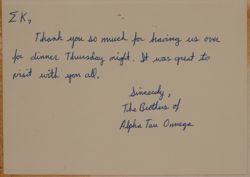 ΣK,
Thank you so much for having us over
for dinner Thursday night. It was great to
visit with you all.
Sincerely,
The Brothers of
Alpha Tau Omega